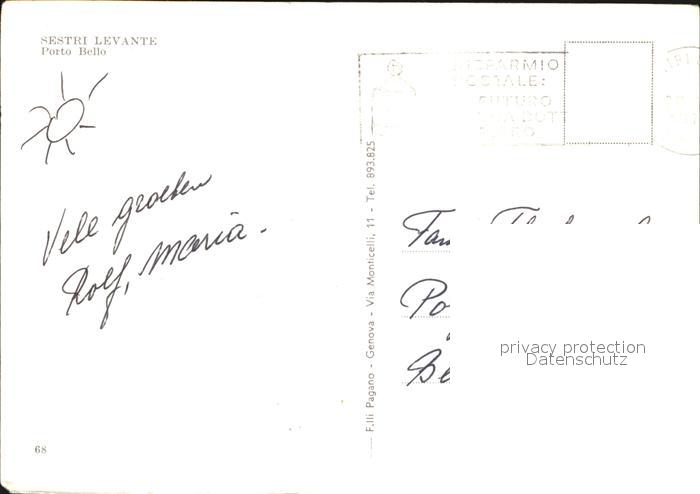 SESTRI LEVANTE
Porto Bello
Vele groeten
Rolf, Maria.
68
F.lli Pagano - Genova - Via Monticelli, 11 - Tel. 893.825
RISPARMIO
POSTALE:
FUTURO
Fam
Po
Be
privacy protection
Datenschutz